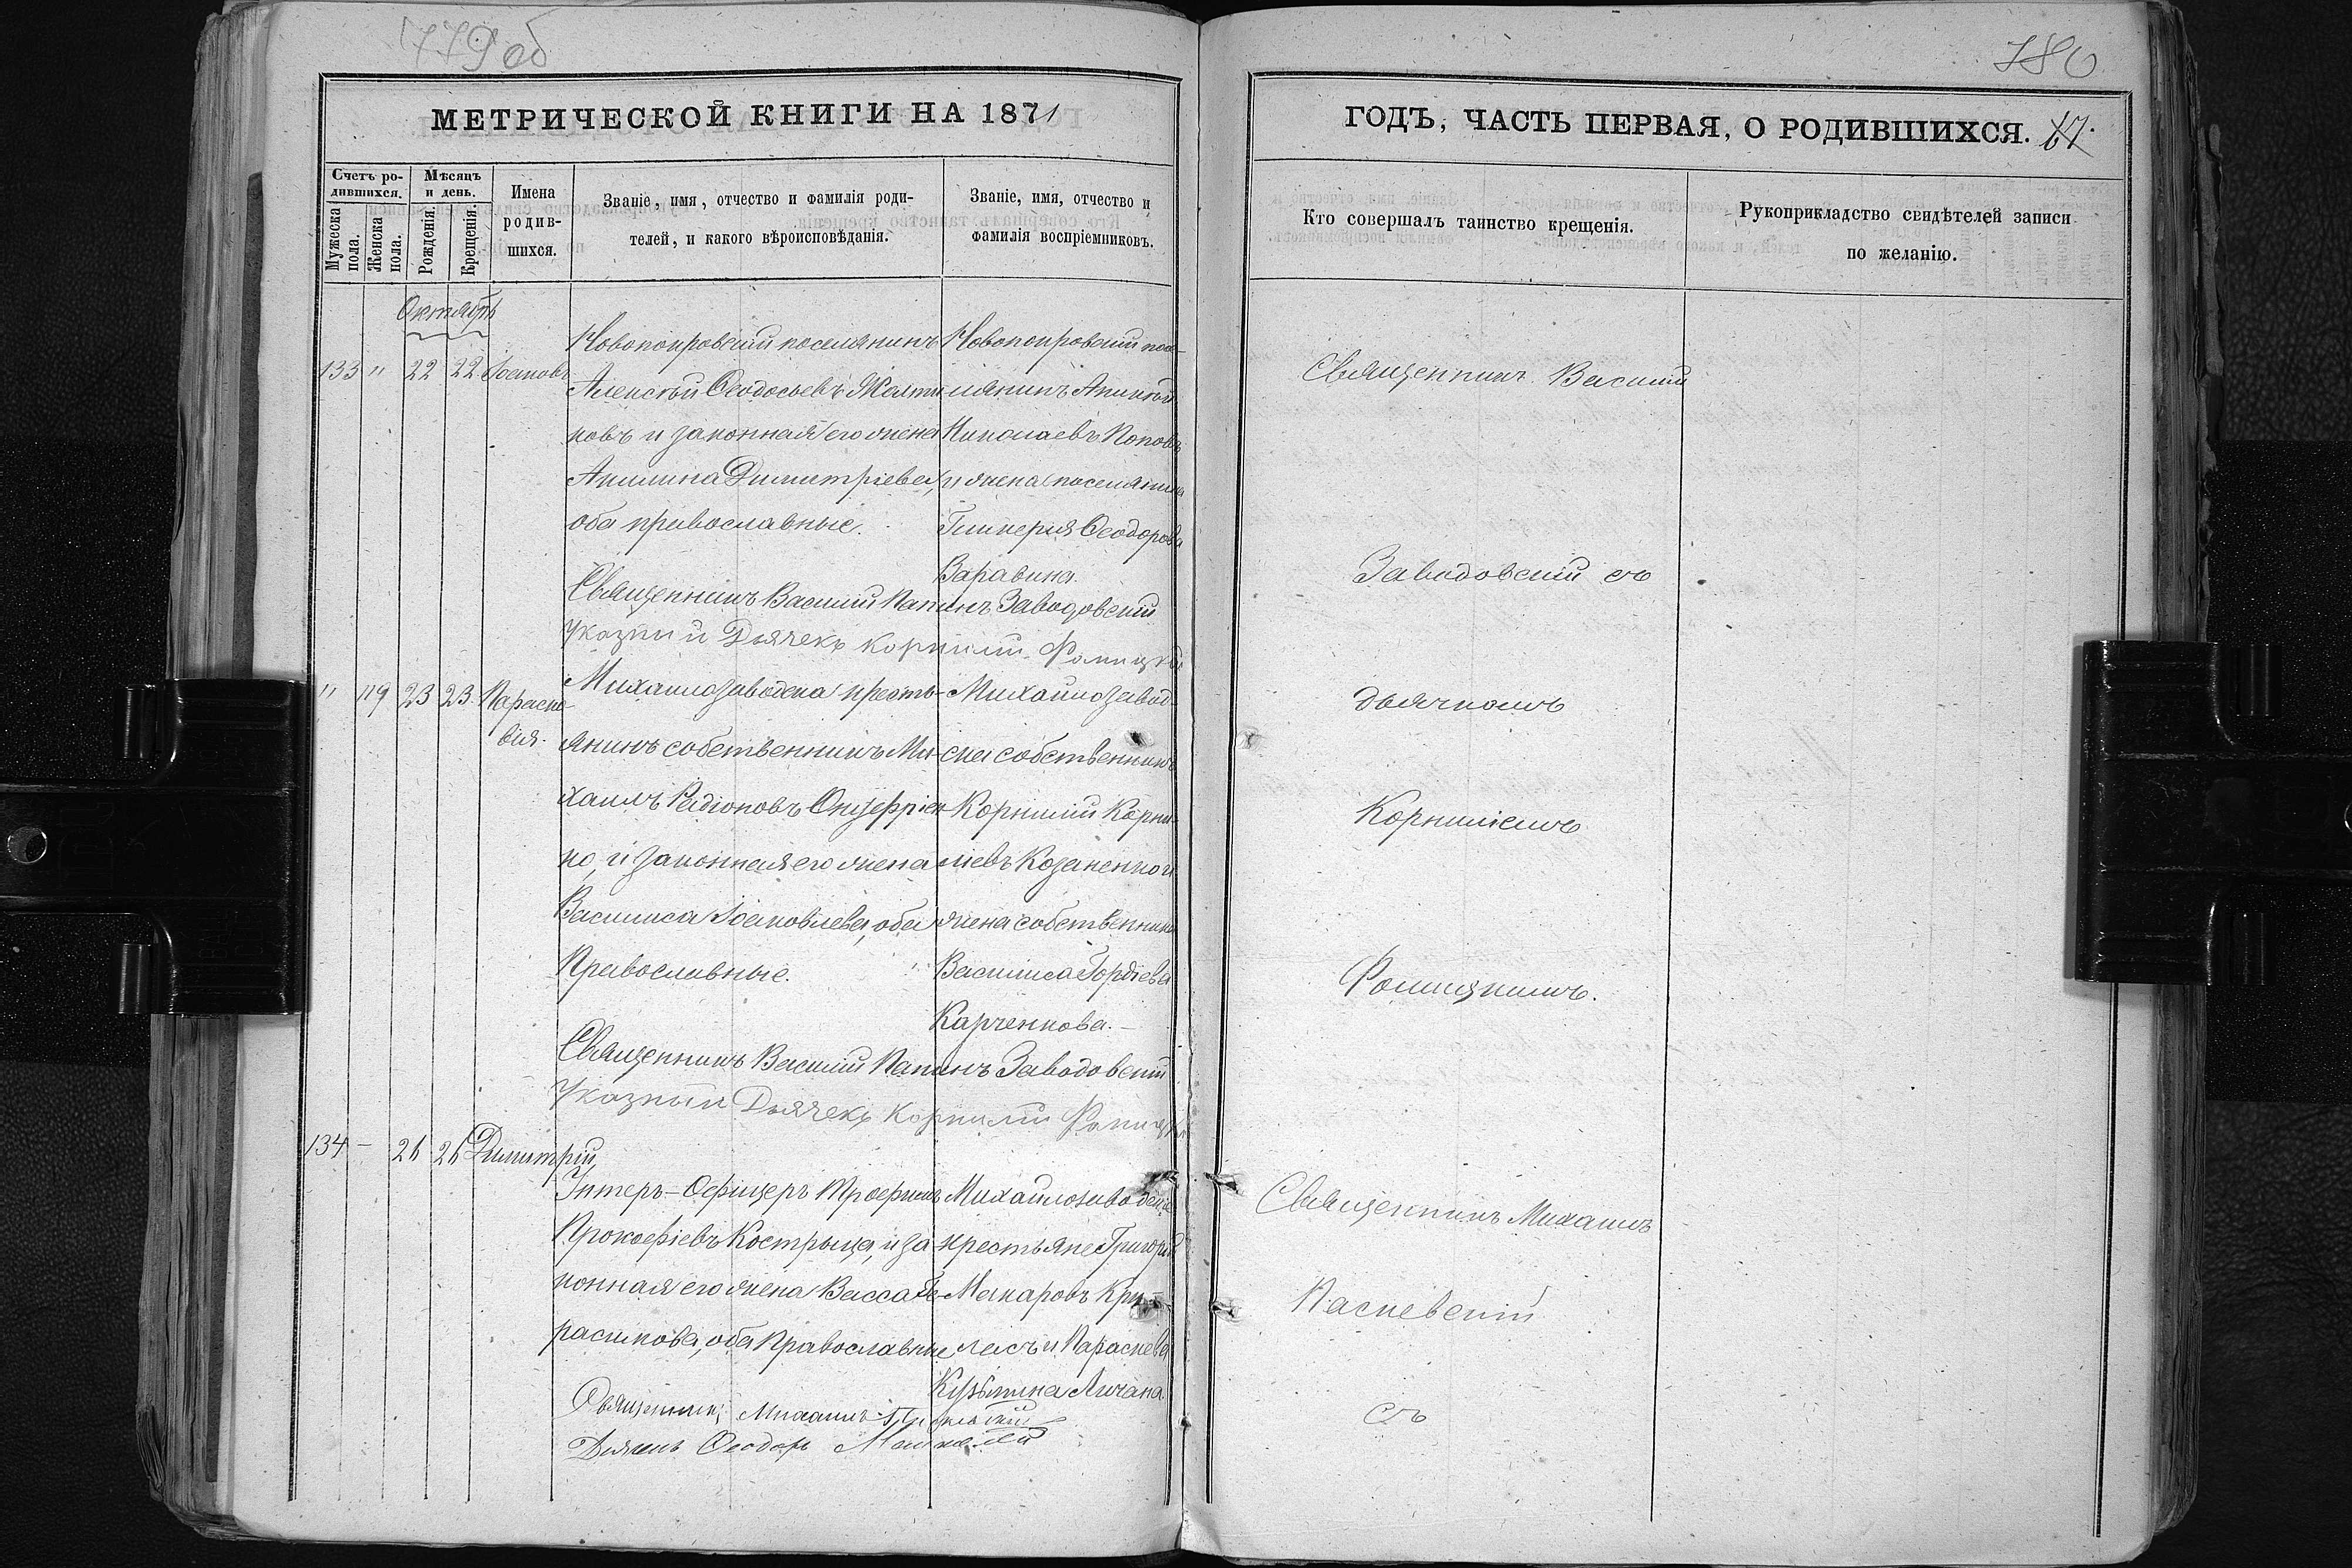 779 об
МЕТРИЧЕСКОЙ КНИГИ НА 1871
Счетъ ро-
дившихся.
Мужеска
пола.
Женска
пола.
Мѣсяцъ
и день.
Рожденія.
Крещенія.
Имена
родив-
шихся.
Званіе, имя, отчество и фамилія роди-
телей, и какого вѣроисповѣданія.
Званіе, имя, отчество и
фамилія воспріемниковъ.
Октябрь
133 " 22 22 Іаковъ
Новопокровскій поселянинъ
Алексѣй Ѳеодосьевъ
ковъ и законная его жена
Акилина Димитріева,
оба православные.
Новопокровскій посе-
лянинъ
Николаевъ Поповъ
и жена поселянина
Гликерія Ѳеодорова
Варавина.
Священникъ Василій Папинъ Заводовскій
Указный Дьячекъ Корнилий
" 119 23 23 Параске-
вія.
Михайлозаводска крестъ-
янинъ собственникъ Ми-
хаилъ Радіоновъ Онуфріен-
ко, и законная его жена
Василиса Іаковлева, оба
Православные.
Михайлозавод-
ска собственникъ
Корнилій Корни-
ліевъ Козаненко и
жена собственника
Василиса Гордіева
Карченкова.
Священникъ Василій Папинъ Заводовскій
Указный Дьячекъ Корнилий
134 – 26 26 Димитрій
Унтеръ-Офицеръ Трофимъ
Прокофіевъ Кострыца, и за-
конная его жена Васса Ге-
расимова, оба Православные
Михайлозаводска
крестьяне Григорій
Макаровъ
и Параскева
Кузьмина
Священникъ Михаилъ
Дьячекъ Ѳеодоръ
780
ГОДЪ, ЧАСТЬ ПЕРВАЯ, О РОДИВШИХСЯ. 67.
Кто совершалъ таинство крещенія.
Рукоприкладство свидѣтелей записи
по желанію.
Священникъ Василій
Заводовскій съ
дьячкомъ
Корниліемъ
Фомицкимъ.
Священникъ Михаилъ
Пасневскій
съ